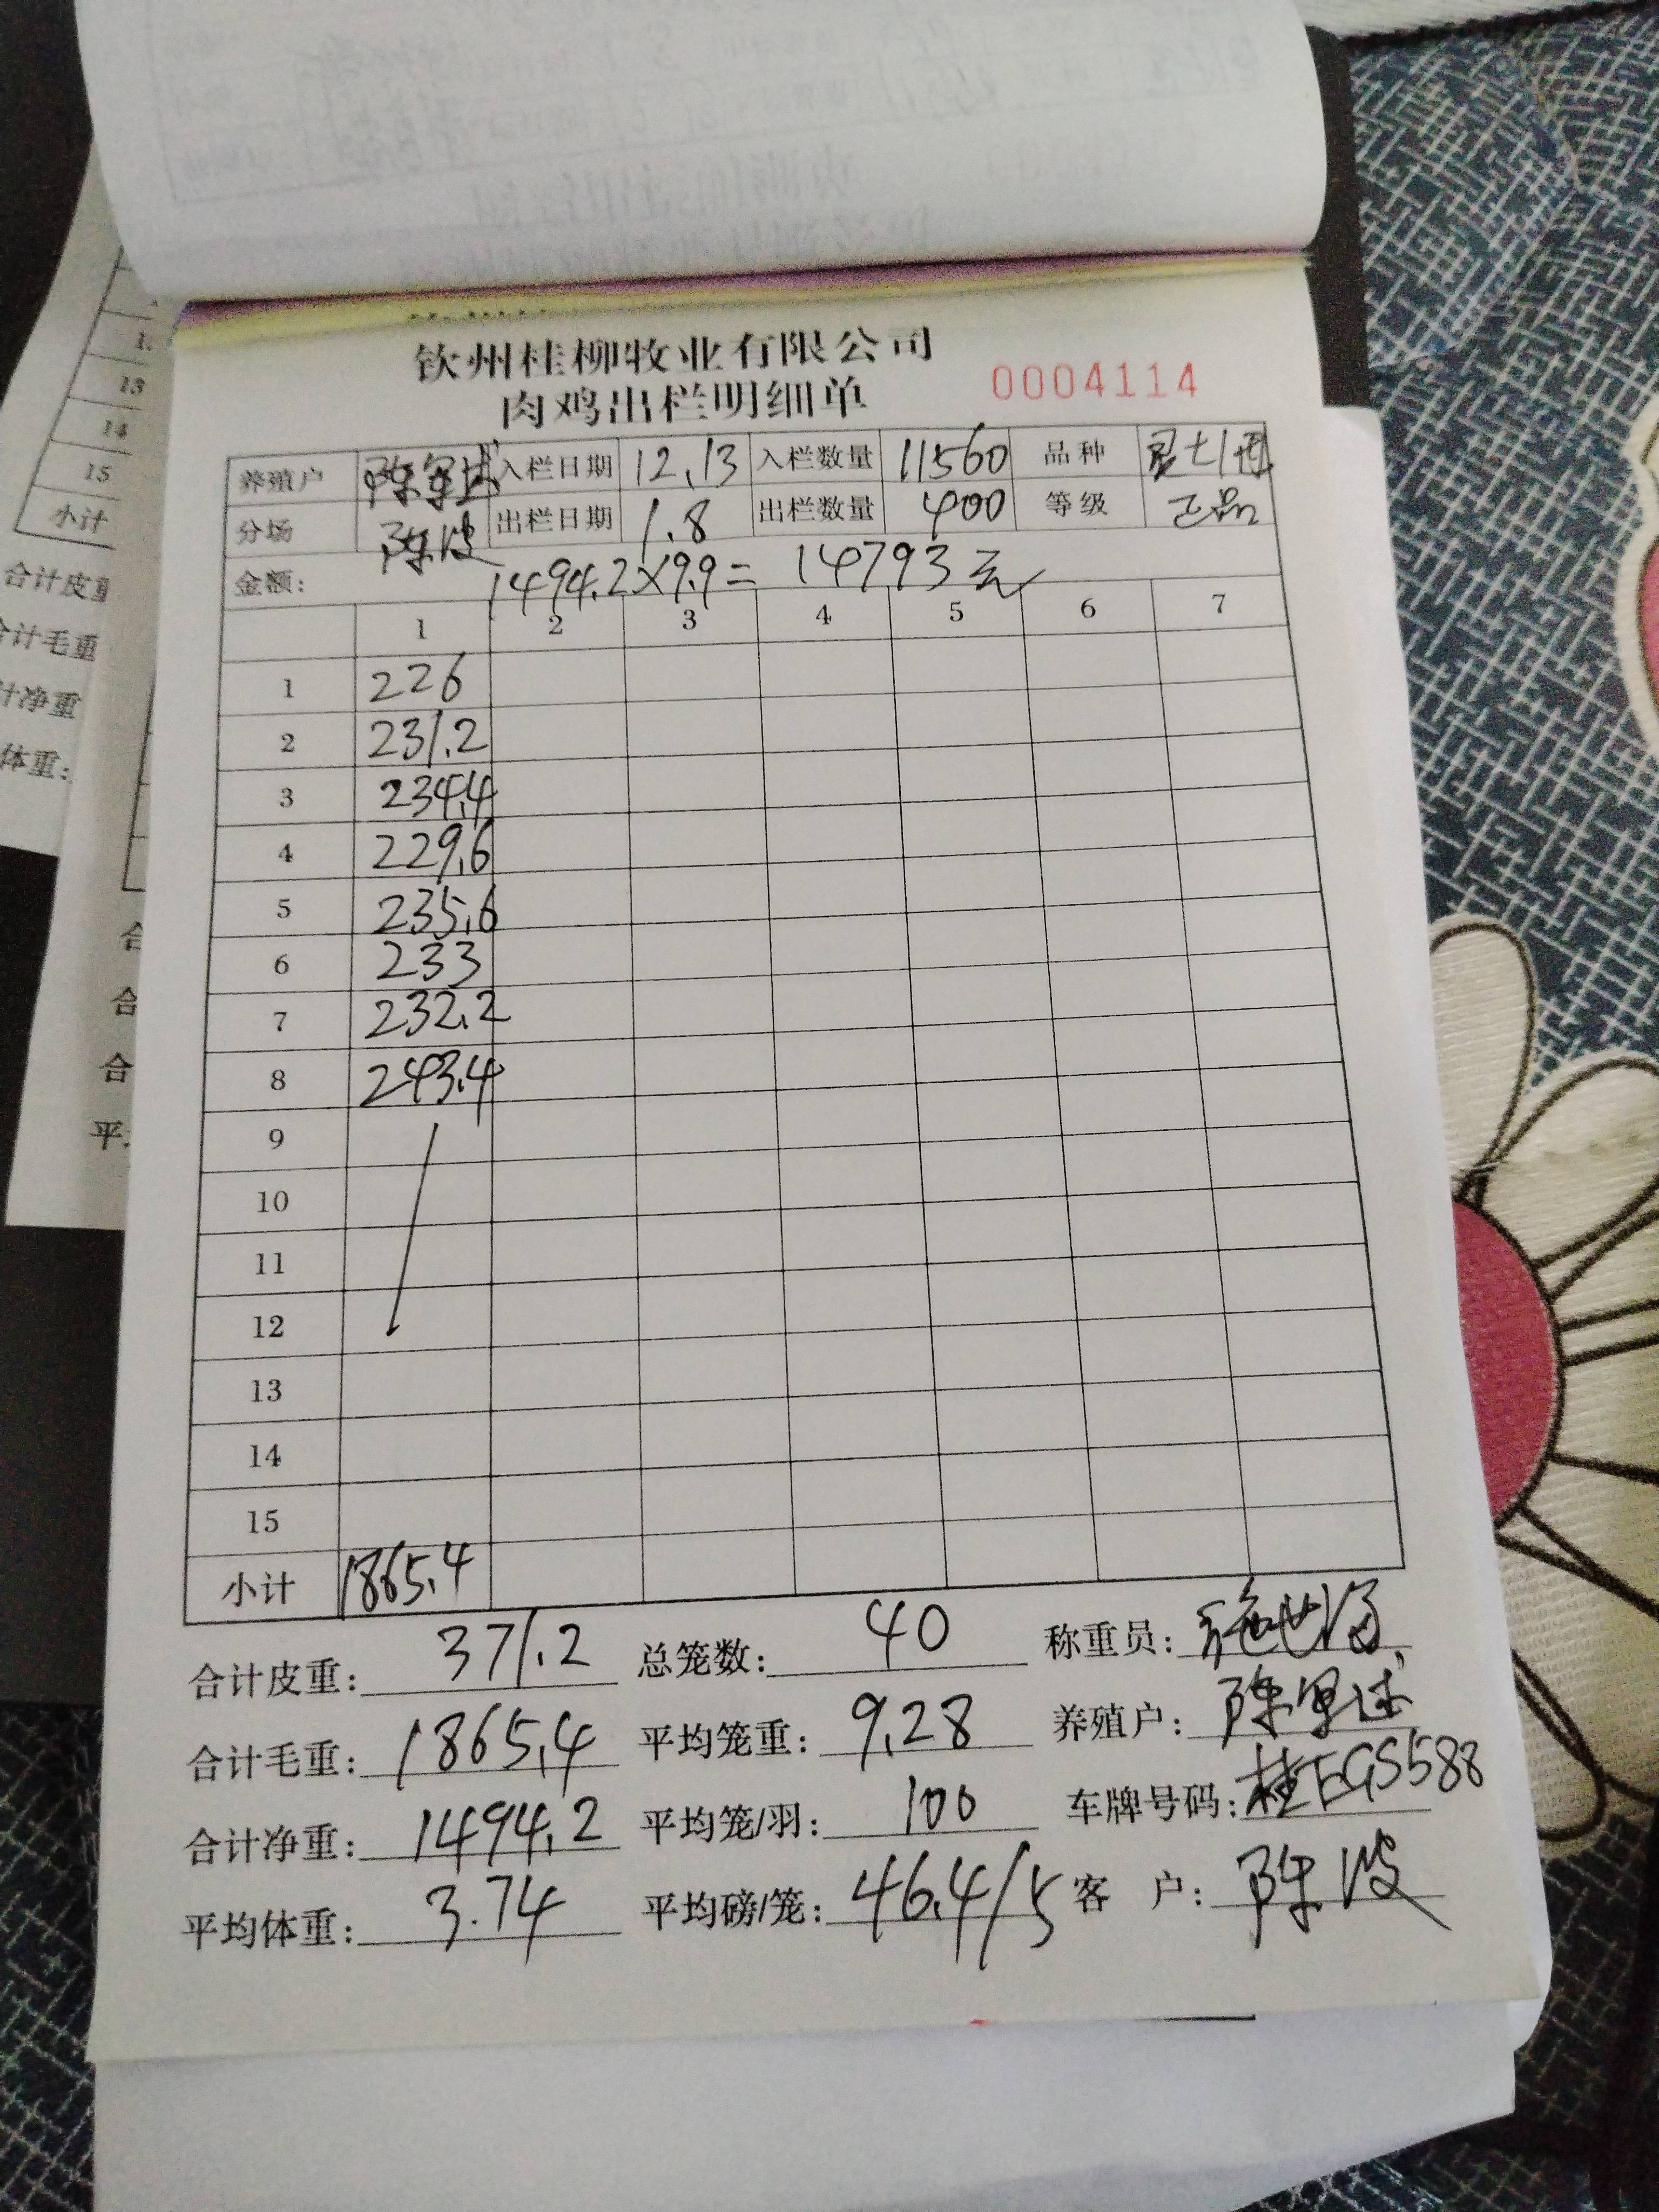 钦州桂柳牧业有限公司
肉鸡出栏明细单 0004114
养殖户 入栏日期 12.13 入栏数量 11560 品种
分场 陈波 出栏日期 1.8 出栏数量 400 等级 正品
金额: 1494.2×9.9= 14793元
1 2 3 4 5 6 7
1 226
2 231.2
3 234.4
4 229.6
5 235.6
6 233
7 232.2
8 243.4
9
10
11
12
13
14
15
小计 1865.4
合计皮重: 371.2 总笼数: 40 称重员:
合计毛重: 1865.4 平均笼重: 9.28 养殖户:
合计净重: 1494.2 平均笼/羽: 100 车牌号码: 桂EGS588
平均体重: 3.74 平均磅/笼: 46.4/5 客 户: 陈波
13
14
15
小计
合计皮重
合计毛重
计净重
体重: